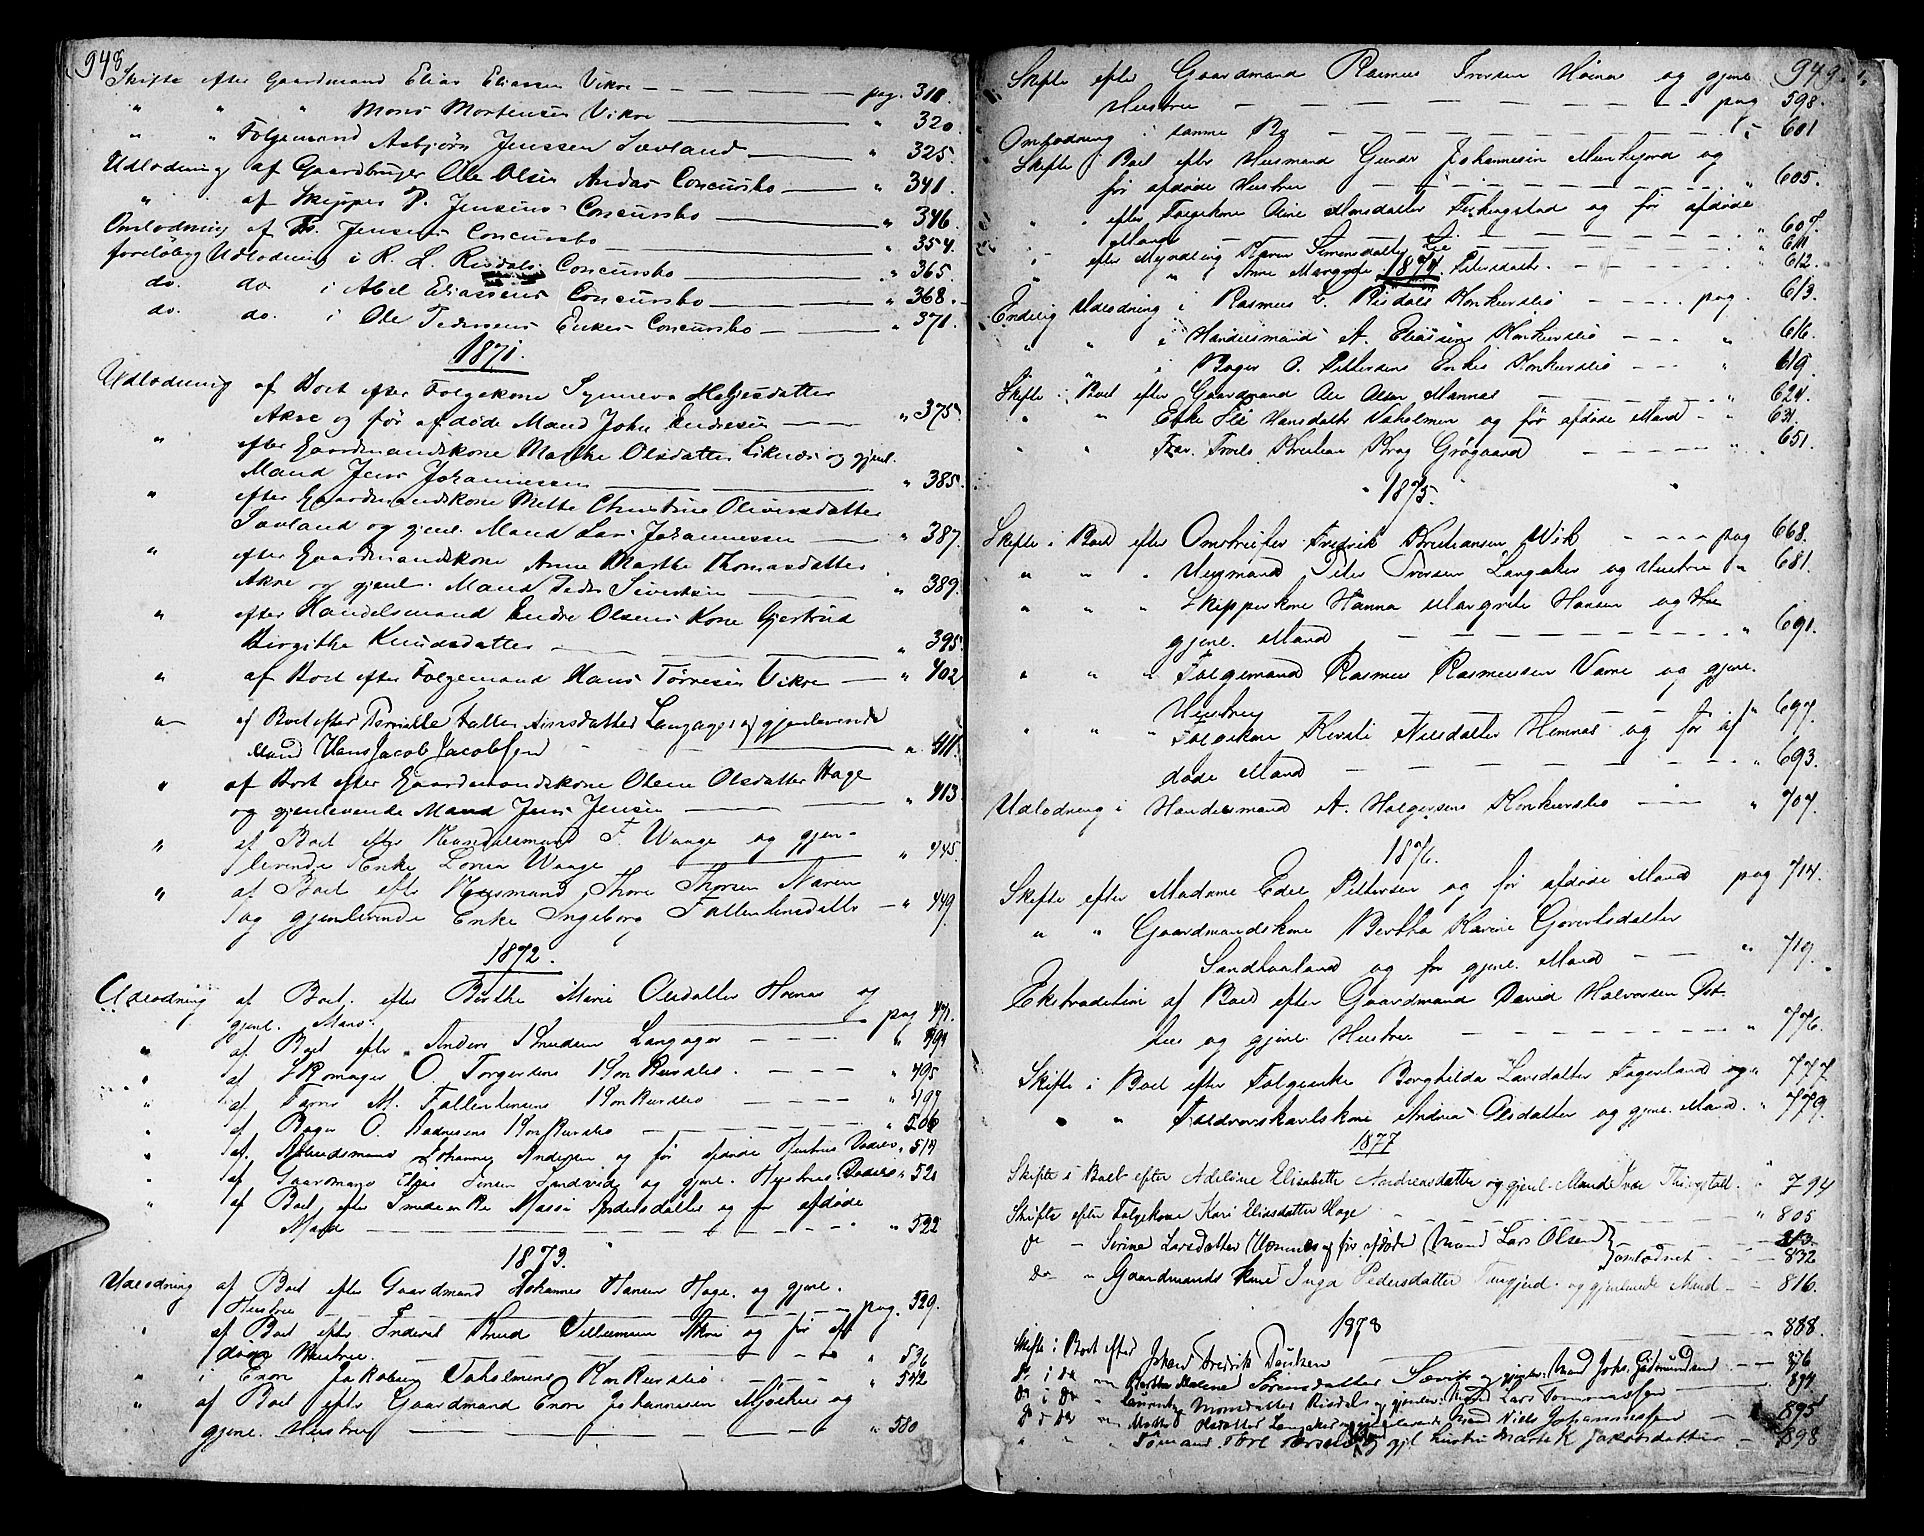 948
Skifte efter Gaardmand Elias Eliassen Vikre — pag. 318.
" " " Mons Mortensen Vikre — " 320.
" " Følgemand Asbjørn Jenssen Sævland — " 325.
Udlodning af Gaardbruger Ole Olsen Andas Concursbo — " 341.
" af Skipper P. Jensens Concursbo — " 346.
Omlodning af Fr. Jensens Concursbo — " 354.
foreløbig Udlodning i R. L. Risdals Concursbo — " 365
do. do i Abel Eliassens Concursbo — " 368.
do. do. i Ole Pedersens Enkes Concursbo — " 371.
1871.
Udlodning af Boet efter Følgekone Synneva Helgesdatter
Akre og før afdøde Mand John Endresen — " 375.
" efter Gaardmandskone Marthe Olsdatter Liknes og gjenl.
Mand Jens Johannessen — " 385.
" efter Gaardmandskone Mette Christine Oliversdatter
Sævland og gjenl. Mand Lars Johannessen — " 387.
" efter Gaardmandskone Anne Marthe Thomasdatter
Akre og gjenl. Mand Peder Sivertsen — " 389.
" efter Handelsmand Endre Olsens Kone Gjertrud
Birgithe Knudsdatter — " 395.
" af Boet efter Følgemand Hans Tørresen Vikre — " 402
" af Boet efter Pernille Fallentinsdatter Langager og gjenlevende
Mand Hans Jacob Jacobsen — " 411.
" af Boet efter Gaardmandskone Olene Olsdatter Hage
og gjenlevende Mand Jens Jensen — " 413.
" af Boet efter Handelsmand F. Waage og gjen-
levende Enke Lovisa Waage — " 445
" af Boet efter Husmand Thore Thorsen Naren
og gjenlevende Enke Ingeborg Fallentinsdatter — " 449.
1872.
Udlodning af Boet efter Berthe Marie Olsdatter Høinæs og
gjenl. Mand. — pag 471.
" af Boet efter Anders Knudsen Langager — " 494
" af Skomager O. Torgersens Konkursbo — " 495
" af Farver M. Fallentinsens Konkursbo — " 497
" af Bager O. Aadnesens Konkursbo — " 506
" af Arbeidsmand Johannes Andersen og før afdøde Hustrus Dødsbo " 514
" af Gaardmand Elias Jensen Sandvig og gjenl. Hustrus Dødsbo " 521
" af Boet efter Smedenke Massi Andersdatter og før afdøde
Mand — " 522
1873.
Udlodning af Boet efter Gaardmand Johannes Hansen Hage og gjenl.
Hustru — pag. 529.
" af Boet efter Inderst Knud Villumsen Akre og før af
døde Hustru. — " 536
" i Enor Jakobsen Vaholmens Konkursbo — " 542
" af Boet efter Gaardmand Enor Johannesen Mjølhus og
gjenl. Hustru — " 580
949.
Skifte efter Gaardmand Rasmus Iversen Høinæs og gjenl
Hustru — pag 598.
Omlodning i samme Bo — " 601
Skifte i Boet efter Husmand Gunder Johannesen Munkejord og
før afdøde Hustru — " 605.
" efter Følgekone Aline Monsdatter Ferkingstad og før afdøde
Mand — " 607.
" efter Myndling Karen Simensdatter Lie — " 611
" " Anne Margrete Pedersdatter — " 612.
1874.
Endelig Udlodning i Rasmus L. Risdals Konkursbo — pag. 613.
" " i Handelsmand A. Eliassens Konkursbo — " 616.
" " i Bager O. Pettersens Enkes Konkursbo — " 619.
Skifte i Boet efter Gaardmand Ole Olsen Mannæs — " 624.
" " Enke Siri Hansdatter Vaholmen og før afdøde Mand — " 631.
" " Prov. Troels Kristian Krog Grøgaard — " 651.
1875.
Skifte i Boet efter Omstreifer Fredrik Kristiansen Wik — pag 668.
" " " Husmand Peter Iversen Langaker og Hustru " 681.
" " " Skipperkone Hanna Margrete Hansen og
gjenl. Mand — " 691.
" " " Følgemand Rasmus Rasmussen Vavre og gjenl.
Hustru — " 697.
" " " Følgekone Kirsti Nilsdatter Hemnæs og før af
døde Mand — " 693.
Udlodning i Handelsmand A. Holgersens Konkursbo — " 707.
1876.
Skifte efter Madame Edel Pettersen og før afdøde Mand pag 714.
" " Gaardmandskone Bertha Karine Govertsdatter
Sandhaaland og før gjenl. Mand — " 719.
Ekstradition af Boet efter Gaardmand David Halvorsen Øst-
hus og gjenl. Hustru — " 776.
Skifte i Boet efter Følgeenke Borghilda Larsdatter Fagerland og " 777.
" " Toldroerskarlskone Andrea Olsdatter og gjenl. Mand. " 779.
1877
Skifte i Boet efter Adeline Elisabeth Andreasdatter og gjenl. Mand Iver Thingstatt. " 794
Skifte efter Følgekone Kari Eliasdatter Hage — " 805
do — Serine Larsdatter Uvennæs og før afdøde Mand Lars Olsen — 813
omlodnet — 832
do " Gaardmands Kone Inga Pedersdatter Tungjerd og gjenlevende Mand — 816.
1878
Skifte i Boet efter Johan Fredrik Poulsen — " 888.
do i do " Bertha Malene Sørensdatter Sævik og gjenlev. Mand Johs. Gudmundsen — 876
do i do " Laurentze Monsdatter Risdal og gjenlev. Mand Lars Tommassen — 894
do i do " Marthe Olsdatter Langaker og gjenlevende Mand Niels Johannessen — 895
" " " Tømmermand Tore Torsen og gjl hustru Marte K Jakobsdatter — 898